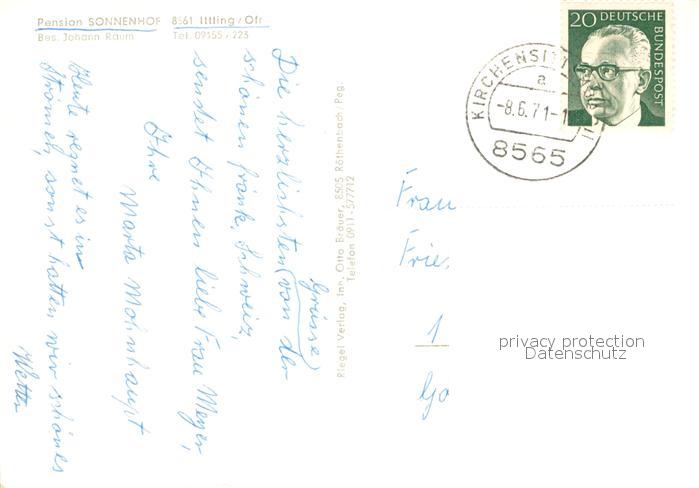 Pension SONNENHOF 8561 Ittling/Ofr
Bes. Johann Raum Tel. 09155/225
Die herzlichsten (von der
Grüsse)
schönen fränk. Schweiz,
sendet Ihnen liebe Frau Meyer,
Ihre
Marta Mohnhaupt
Heute regnet es in
Strömen, sonst hatten wir schönes
Wetter
Riegel Verlag, Inh. Otto Bräuer, 8505 Röthenbach/Peg.
Telefon 0911-577712
20 DEUTSCHE
BUNDESPOST
KIRCHENSITTENBACH
a
-8.6.71-1
8565
Frau
Frie
1
Go
privacy protection
Datenschutz